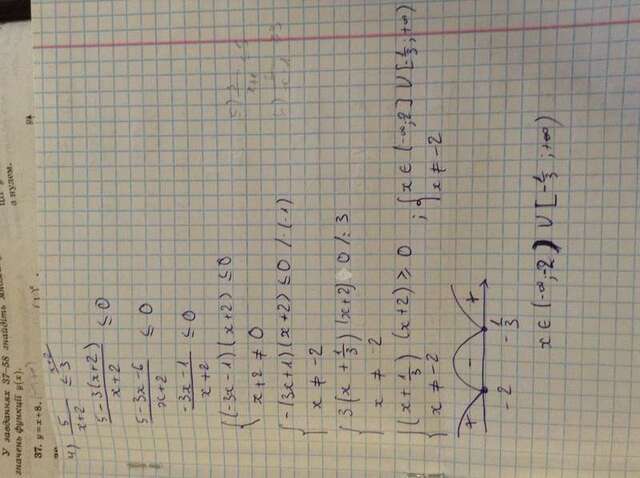 У завданнях 37-58 знайдіть
значень функції y(x).
з нулем.
37. y=x+8.
4) 5/(x+2) ≤ 3^(x+2)
(5-3(x+2))/(x+2) ≤ 0
(5-3x-6)/(x+2) ≤ 0
(-3x-1)/(x+2) ≤ 0
{ (-3x-1)(x+2) ≤ 0
x+2 ≠ 0
{ -(3x+1)(x+2) ≤ 0 /·(-1)
x ≠ -2
{ 3(x + 1/3)(x+2) 0 /: 3
x ≠ -2
{ (x + 1/3)(x+2) ≥ 0 ; { x ∈ (-∞;-2] ∪ [-1/3; +∞)
x ≠ -2 x ≠ -2
+ - +
-2 -1/3
x ∈ (-∞;-2) ∪ [-1/3; +∞)